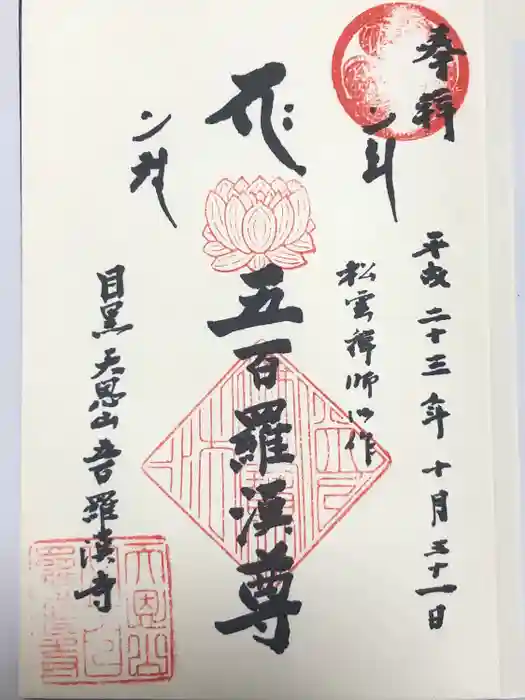 奉拝
平成二十三年十月三十一日
松雲禅師御作
五百羅漢尊
目黒天恩山五百羅漢寺